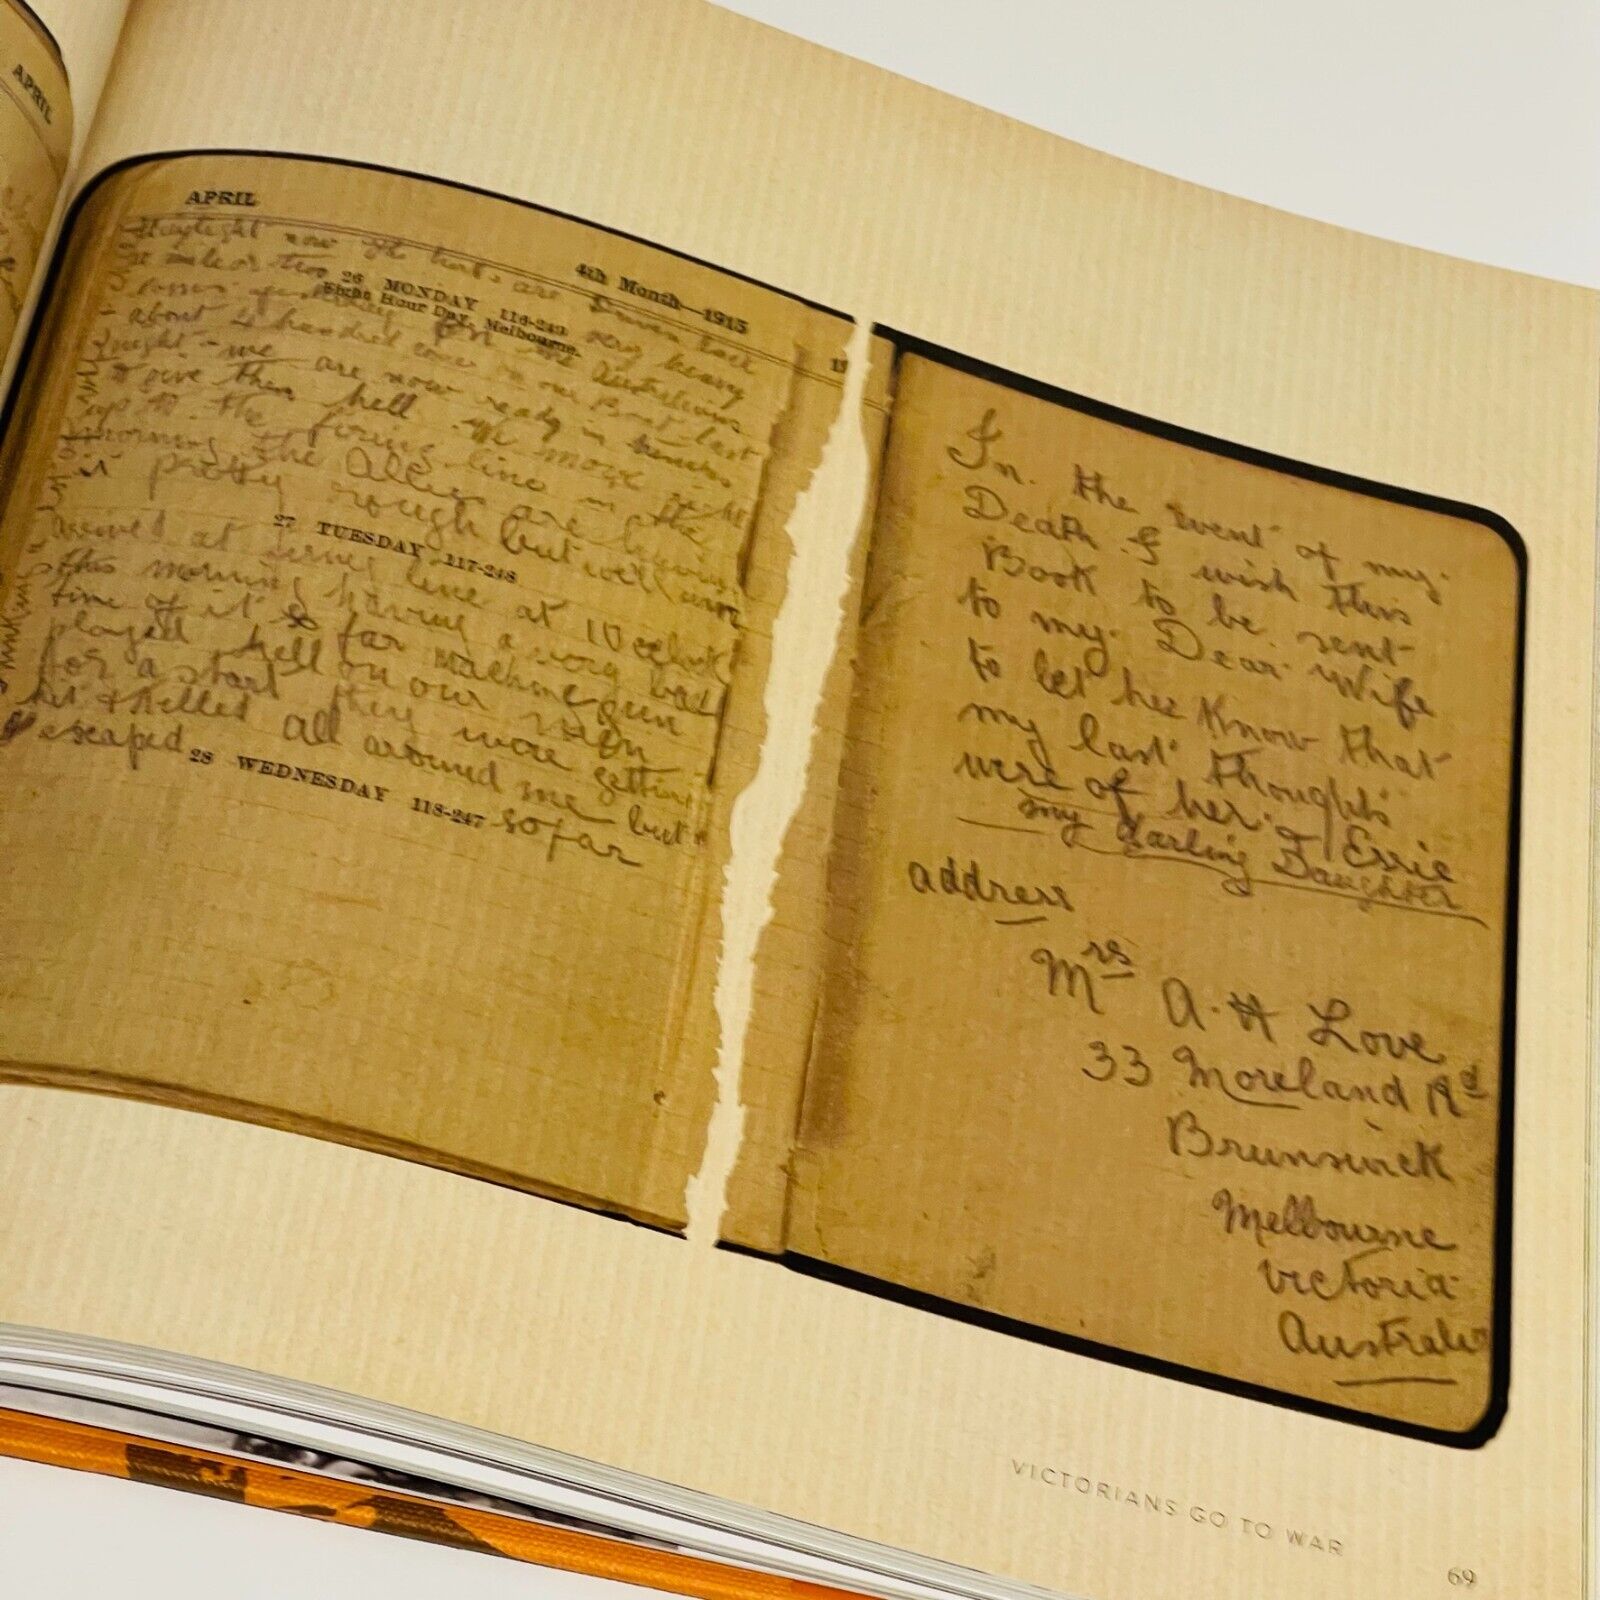 APRIL
APRIL
4th Month—1915
Daylight now the are Driven back
a mile or two very heavy
26 MONDAY 116-249
Eight Hour Day, Melbourne.
losses Australian
about 4 hundred come in our Boat last
night - we are now ready in
to give them hell. We move
up to the firing line in the
morning the Allies are having
it pretty rough but will
27 TUESDAY 117-248
arrived at firing line at 10 oclock
this morning having a very bad
time of it so far machine gun
played hell on our
for a start they were getting
hit & killed all around me but
I escaped so far
28 WEDNESDAY 118-247
In the event of my
Death I wish this
Book to be sent
to my Dear Wife
to let her Know that
my last thoughts
were of her. & Essie
my darling Daughter
address
Mrs A. H Love
33 Moreland Rd
Brunswick
Melbourne
Victoria
Australia
VICTORIANS GO TO WAR
69